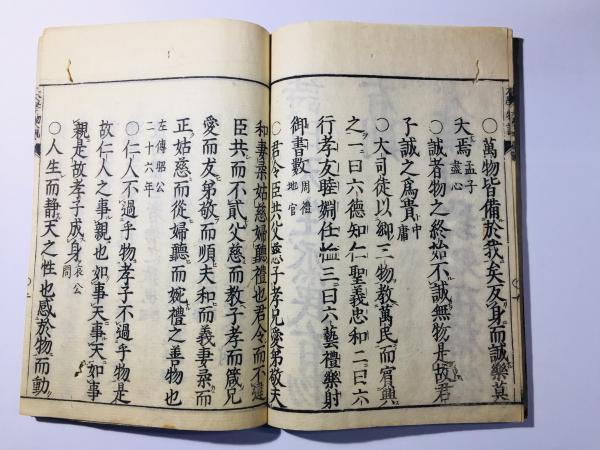 〇萬物皆備於我矣反身而誠樂莫
大焉孟子盡心
〇誠者物之終始不誠無物是故君
子誠之爲貴中庸
〇大司徒以鄉三物教萬民而賓興
之一曰六德知仁聖義忠和二曰六
行孝友睦婣任恤三曰六藝禮樂射
御書數周禮地官
〇君令臣共父慈子孝兄愛弟敬夫
和妻柔姑慈婦聽禮也君令而不違
臣共而不貳父慈而教子孝而箴兄
愛而友弟敬而順夫和而義妻柔而
正姑慈而從婦聽而婉禮之善物也
左傳昭公二十六年
〇仁人不過乎物孝子不過乎物是
故仁人之事親也如事天事天如事
親是故孝子成身哀公問
〇人生而靜天之性也感於物而動